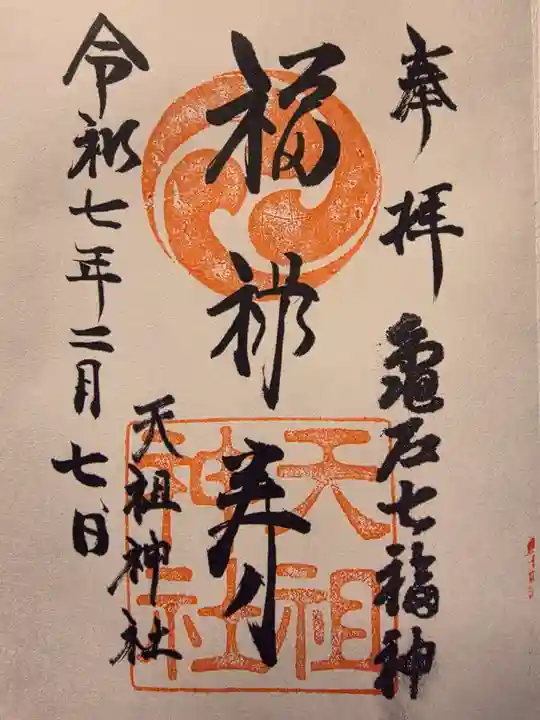 奉拝 亀戸七福神
福禄寿
天祖神社
天祖神社
令和七年二月七日